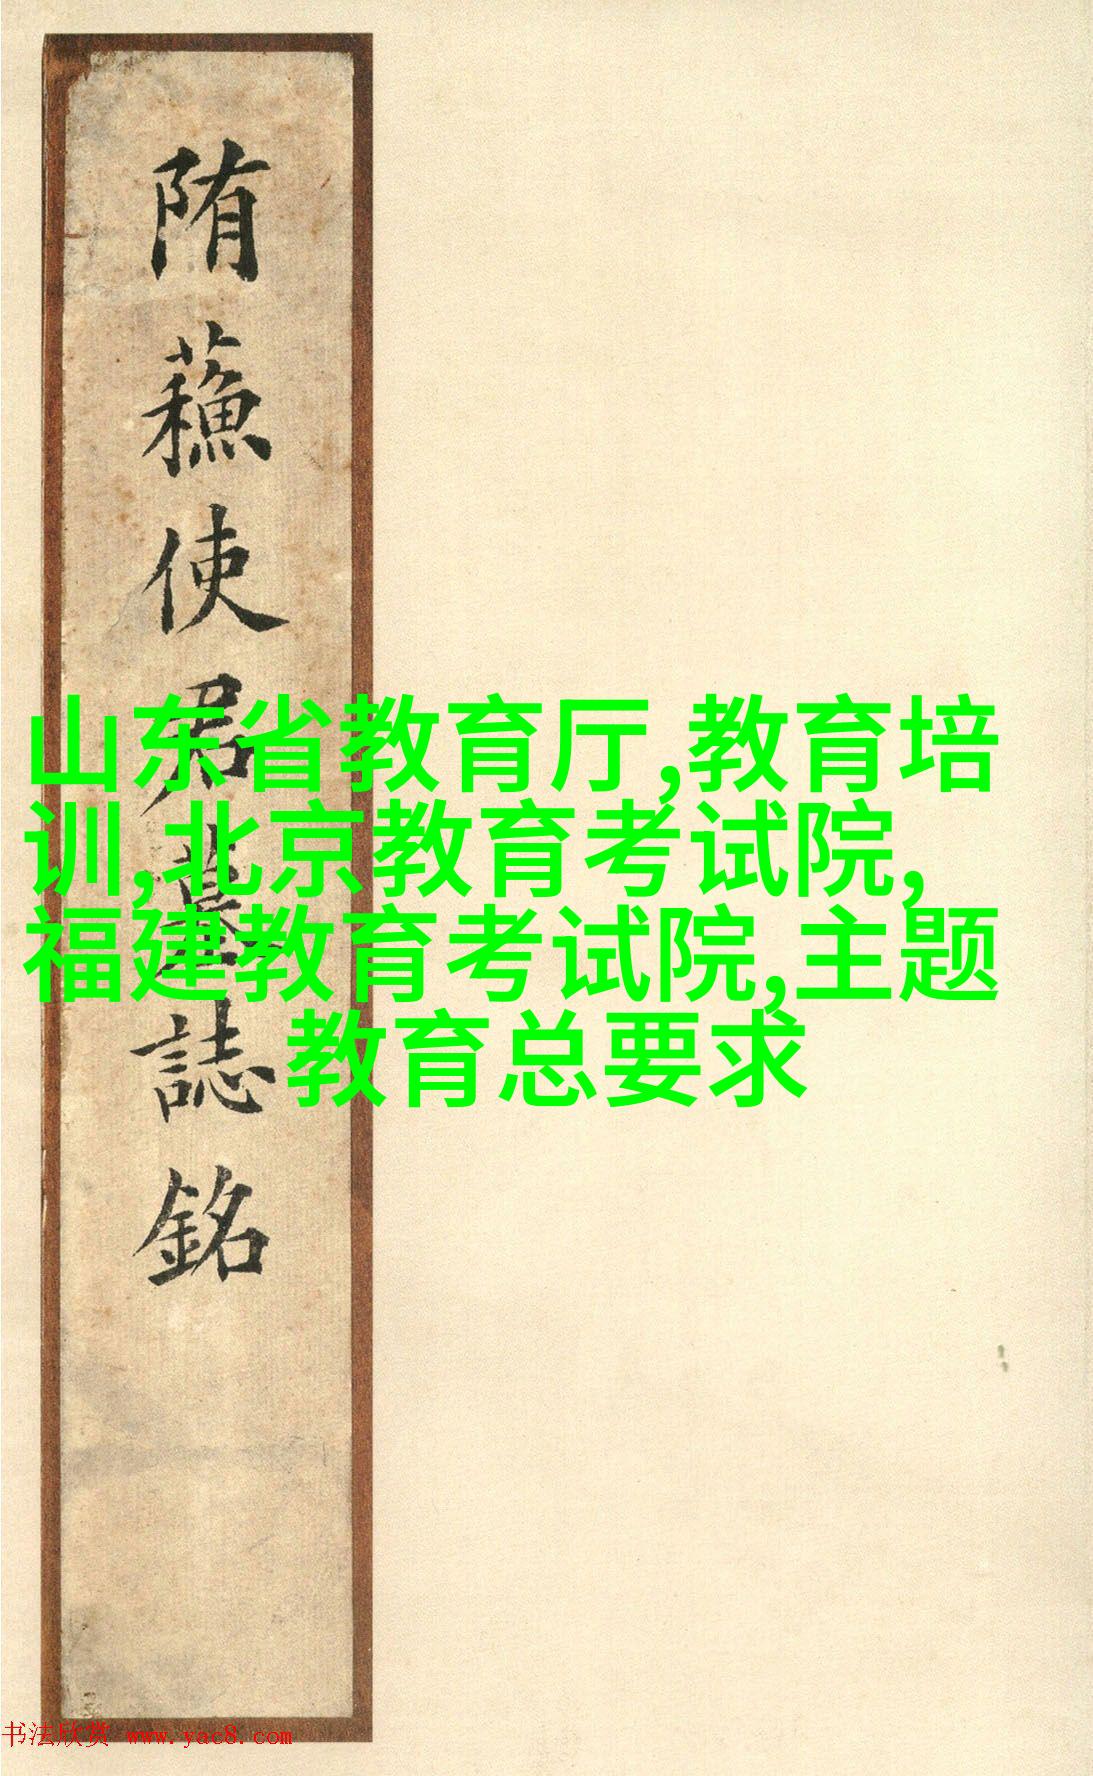 隋蘓使君墓誌銘
山东省教育厅,教育培
训,北京教育考试院,
福建教育考试院,主题
教育总要求
书法欣赏 www.yac8.com